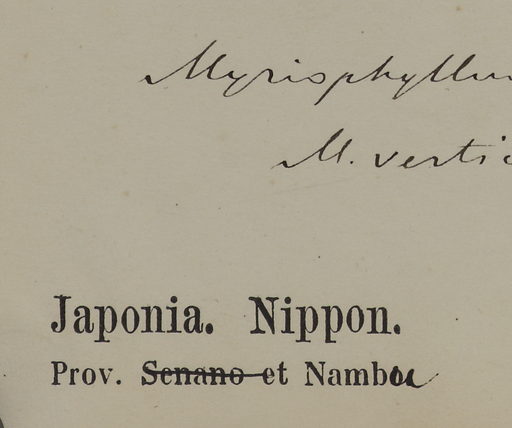 Myriophyllu
M. vertic
Japonia. Nippon.
Prov. Senano et Nambu